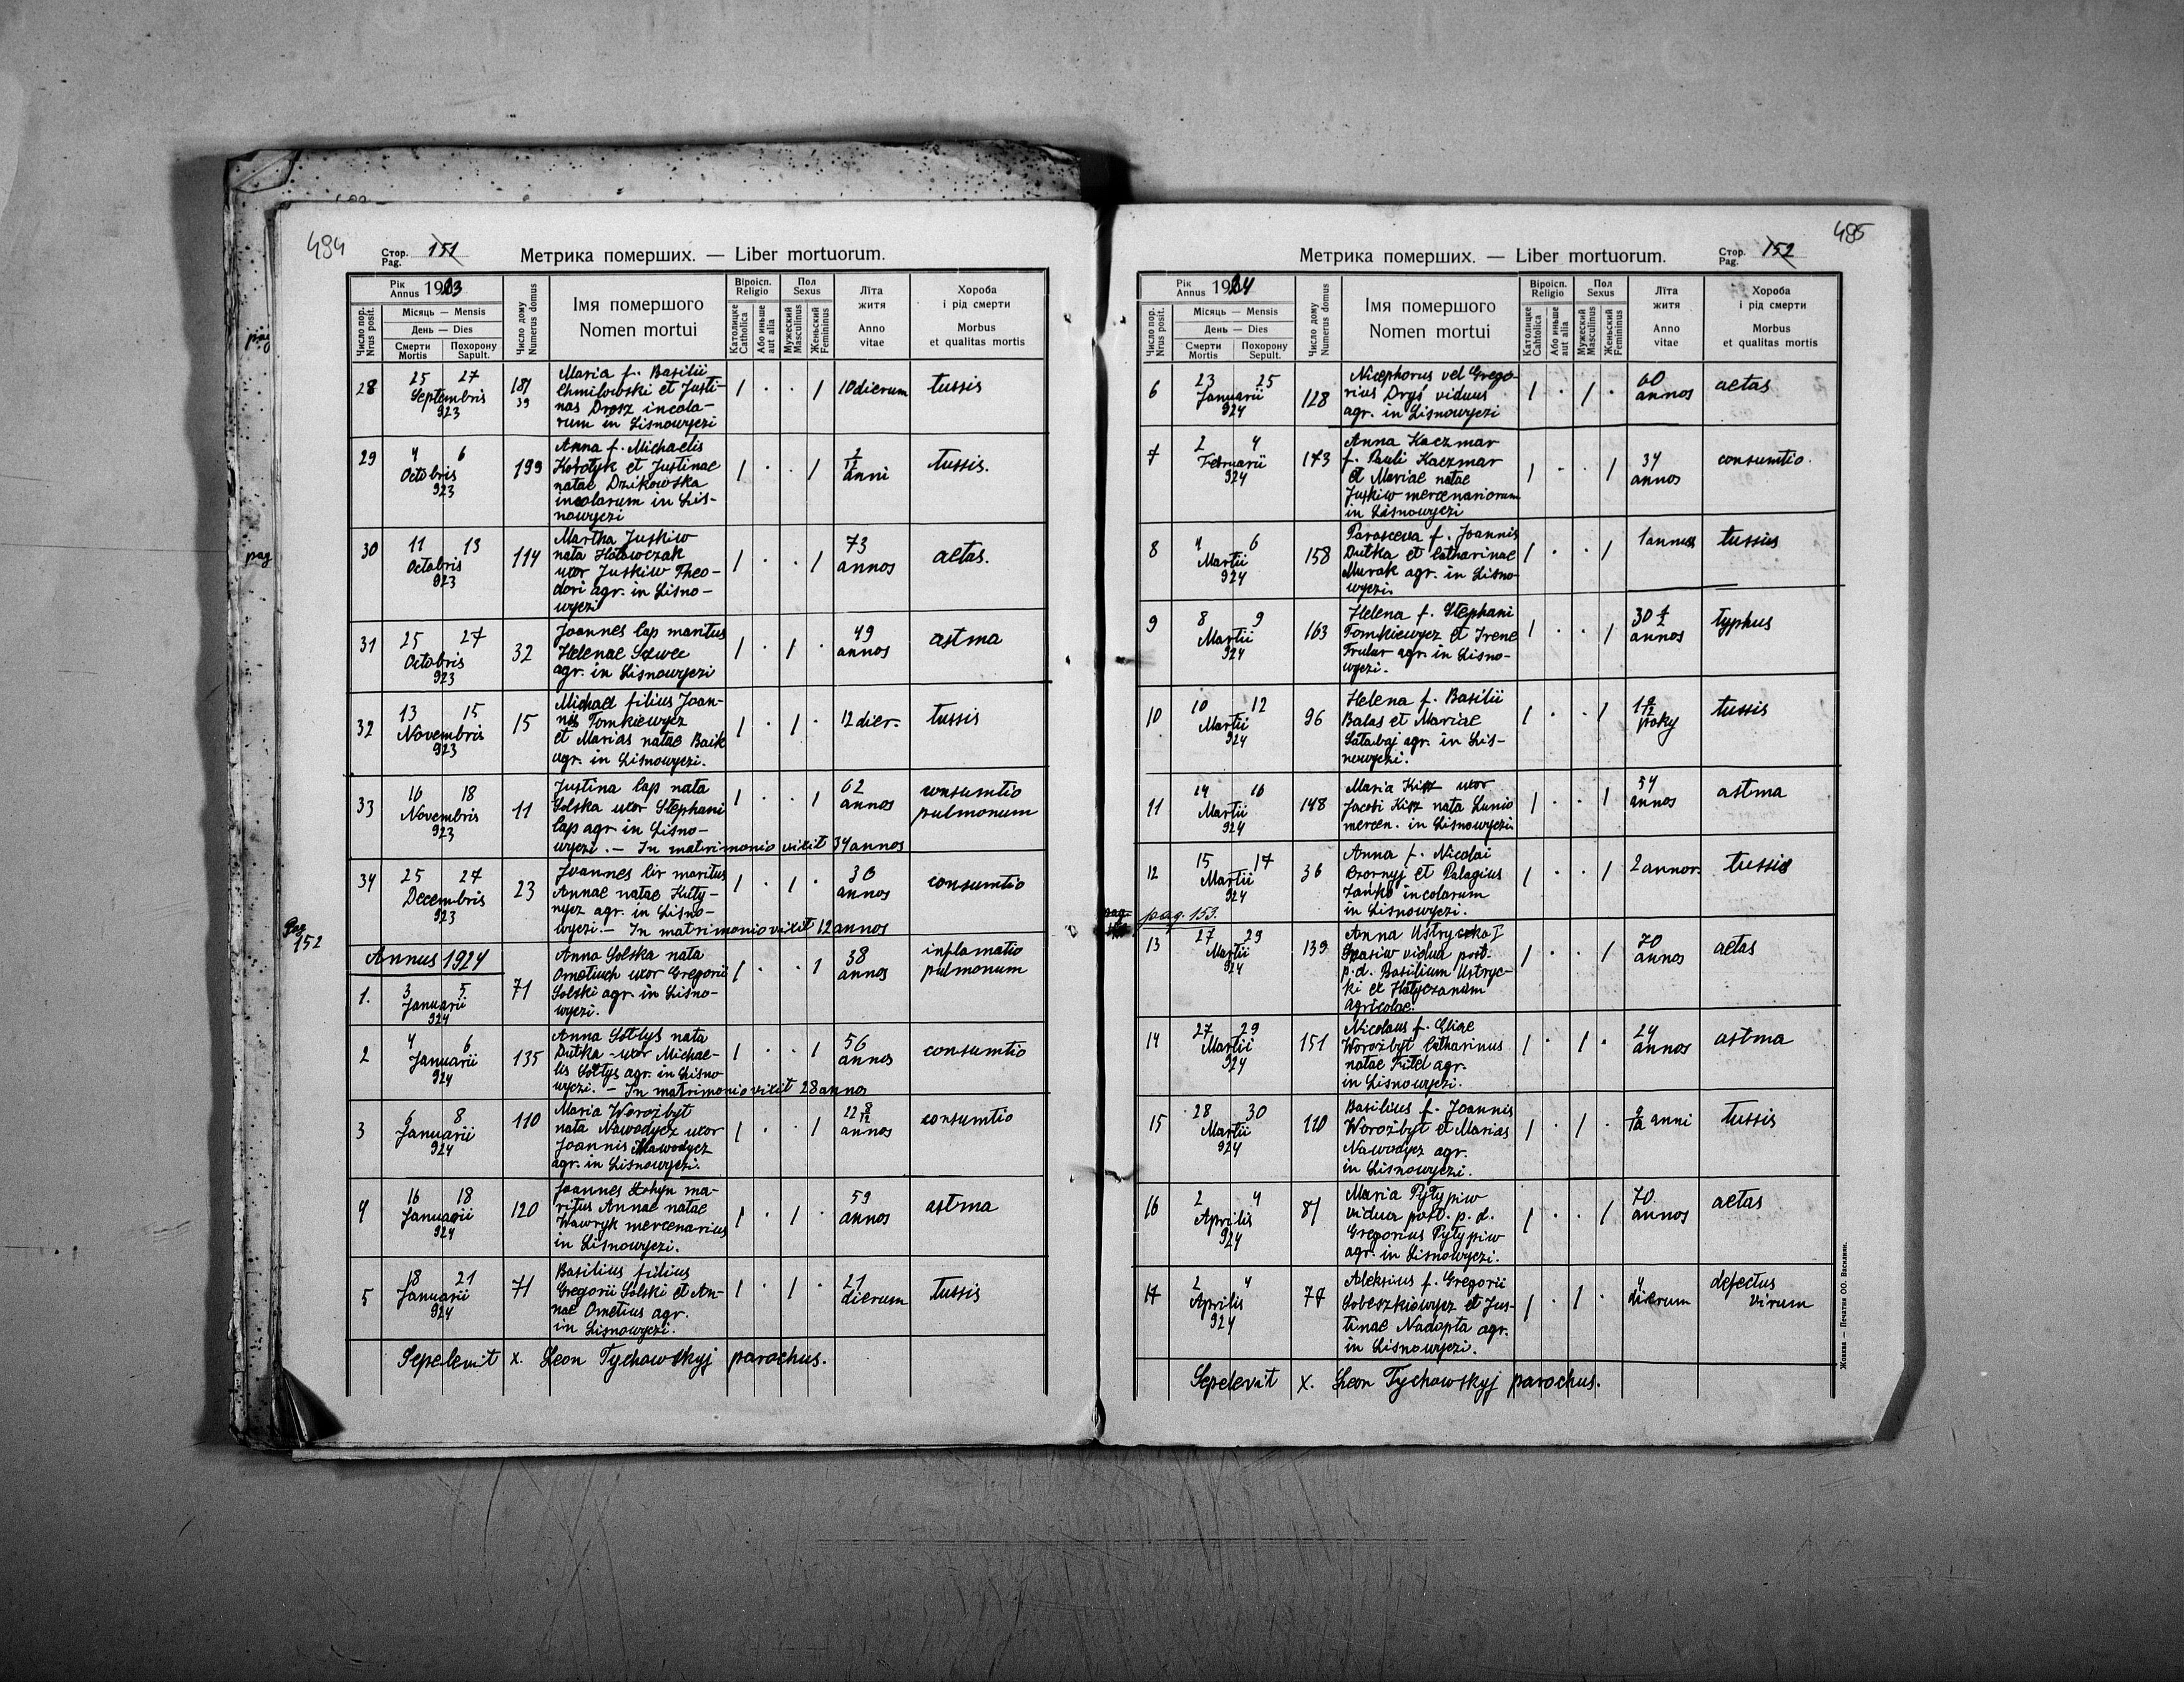 494
Стор. Pag. 151
Метрика померших. — Liber mortuorum.
Число пор. Nrus posit.
Рік Annus 1923
Місяць — Mensis
День — Dies
Смерти Mortis
Похорону Sepult.
Число дому Numerus domus
Імя помершого
Nomen mortui
Віроісп. Religio
Католицке Catholica
Або иньше aut alia
Пол Sexus
Мужеский Masculinus
Женьский Femininus
Лїта житя
Anno vitae
Хороба і рід смерти
Morbus et qualitas mortis
28 25 27 Septembris 923 187 39
Maria f. Basilii
Chmilowski et Justi-
nas Drosz incola-
rum in Lisnowyczi
10 dierum tussis
29 4 6 Octobris 923 199
Anna f. Michaelis
Korotyk et Justinae
natae Dzikowska
incolarum in Lis-
nowyczi
anni tussis.
30 11 13 Octobris 923 114
Martha Juskiw
nata Hotowczak
uxor Juskiw Theo-
dori agr. in Lisno-
wyczi
73 annos aetas.
31 25 27 Octobris 923 32
Joannes Cap maritus
Helenae Szwec
agr. in Lisnowyczi
49 annos astma
32 13 15 Novembris 923 15
Michael filius Joan-
nis Tomkiewycz
et Marias natae Baik
agr. in Lisnowyczi.
12 dier. tussis
33 16 18 Novembris 923 11
Justina Cap nata
Solska uxor Stephani
Cap agr. in Lisno-
wyczi. — In matrimonio vixit 34 annos
62 annos consumtio pulmonum
34 25 27 Decembris 923 23
Joannes Cir maritus
Annae natae Kuty-
nycz agr. in Lisno-
wyczi. — In matrimonio vixit 12 annos
36 annos consumtio
Pag 152
Annus 1924
1. 3 5 Januarii 924 71
Anna Solska nata
Ometiuch uxor Gregorii
Solski agr. in Lisno-
wyczi.
38 annos inflamatio pulmonum
2 4 6 Januarii 924 135
Anna Soltys nata
Dutka - uxor Michae-
lis Soltys agr. in Lisno
wyczi. — In matrimonio vixit 28 annos
56 annos consumtio
3 6 8 Januarii 924 110
Maria Worożbyt
nata Nawodycz uxor
Joannis Nawodycz
agr. in Lisnowyczi.
22 8/12 annos consumtio
4 16 18 Januarii 924 120
Joannes ma-
ritus Annae natae
Wawryk mercenarius
in Lisnowyczi.
59 annos astma
5 18 21 Januarii 924 71
Basilius filius
Gregorii Solski et An-
nae Ometius agr.
in Lisnowyczi.
21 dierum tussis
Sepelevit x. Leon Tychowskyj parochus.
495
Метрика померших. — Liber mortuorum.
Стор. Pag. 152
Число пор. Nrus posit.
Рік Annus 1924
Місяць — Mensis
День — Dies
Смерти Mortis
Похорону Sepult.
Число дому Numerus domus
Імя помершого
Nomen mortui
Віроісп. Religio
Католицке Cahtolica
Або иньше aut alia
Пол Sexus
Мужеский Masculinus
Женьский Femininus
Лїта житя
Anno vitae
Хороба і рід смерти
Morbus et qualitas mortis
6 23 25 Januarii 924 128
Nicephorus vel Grego-
rius Dryś viduus
agr. in Lisnowyczi
60 annos aetas
7 2 4 Februarii 924 173
Anna Kaczmar
f. Pauli Kaczmar
et Mariae natae
Juskiw mercenariorum
in Lisnowyczi
34 annos consumtio.
8 4 6 Martii 924 158
Parasceva f. Joannis
Dutka et Catharinae
Murak agr. in Lisno
wyczi.
1 annus tussis
9 8 9 Martii 924 163
Helena f. Stephani
Tomkiewycz et Irene
agr. in Lisno-
wyczi.
30 1/2 annos typhus
10 10 12 Martii 924 96
Helena f. Basilii
Balas et Mariae
Satabaj agr. in Lis-
nowyczi.
roky tussis
11 14 16 Martii 924 148
Maria Kisz uxor
Jacobi Kisz nata Lunio
mercen. in Lisnowyczi.
54 annos astma
12 15 17 Martii 924 36
Anna f. Nicolai
Czornyj et Palagius
Jańko incolarum
in Lisnowyczi.
2 annor. tussis
pag. 153.
13 27 29 Martii 924 139
Anna Ustrycka I
Spasiw vidua post.
p.d. Basilium Ustryc-
ki ex Hotyczanum
agricolae.
70 annos aetas
14 27 29 Martii 924 151
Nicolaus f. Eliae
Worożbyt Catharinus
natae Fited agr.
in Lisnowyczi.
24 annos astma
15 28 30 Martii 924 110
Basilius f. Joannis
Worożbyt et Marias
Nawodycz agr.
in Lisnowyczi.
anni tussis
16 2 4 Aprilis 924 87
Maria Pytypiw
vidua post. p. d.
Gregorius Pytypiw
agr. in Lisnowyczi.
70 annos aetas
17 2 4 Aprilis 924 77
Aleksius f. Gregorii
Sobeszkiewycz et Jus-
tinae Nadopta agr.
in Lisnowyczi.
4 dierum defectus virum
Sepelevit x. Leon Tychowskyj parochus.
Жовква — Печатня ОО. Василиян.